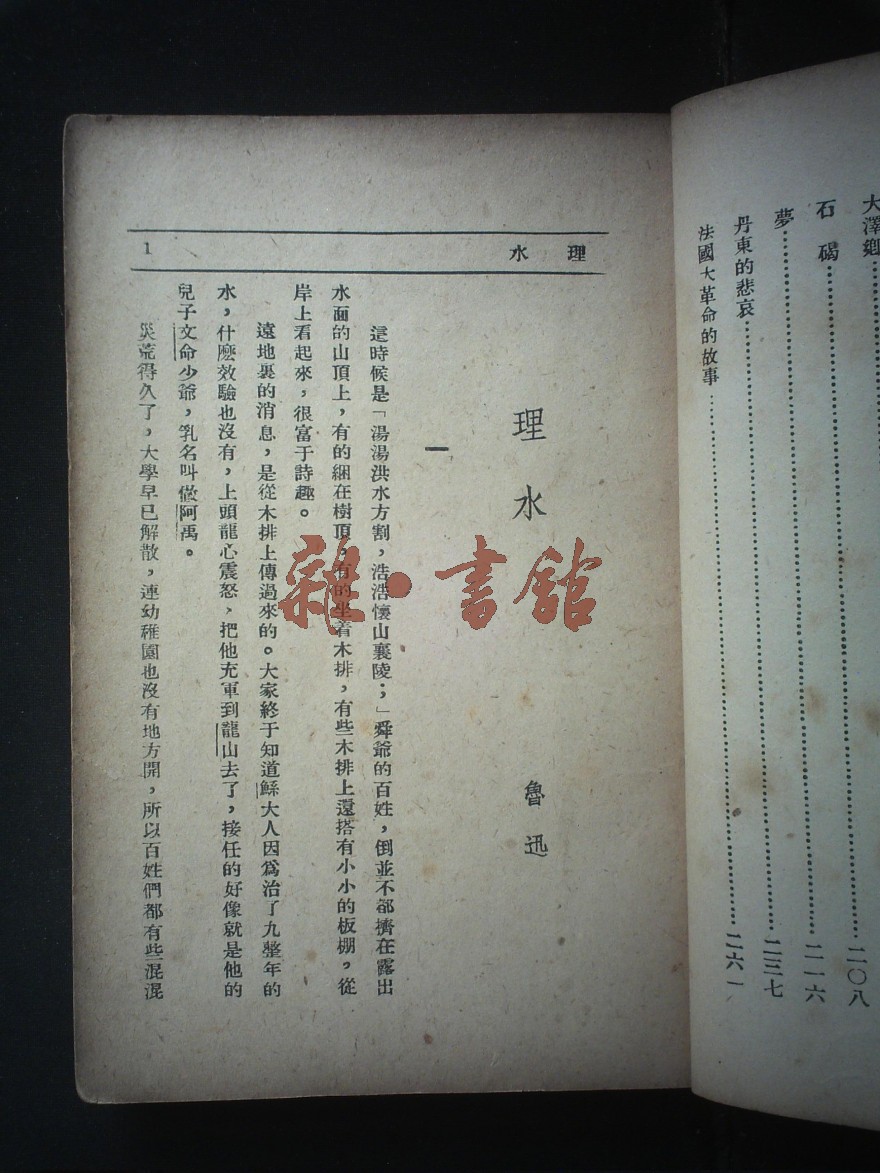 大澤鄉……二〇八
石碣……二一六
夢……二三七
丹東的悲哀……
法國大革命的故事……二六一
理水
1
理水
魯迅
一
這時候是「湯湯洪水方割，浩浩懷山襄陵；」舜爺的百姓，倒並不都擠在露出
水面的山頂上，有的綑在樹頂，有的坐着木排，有些木排上還搭有小小的板棚，從
岸上看起來，很富于詩趣。
遠地裏的消息，是從木排上傳過來的。大家終于知道鯀大人因爲治了九整年的
水，什麼效驗也沒有，上頭龍心震怒，把他充軍到龍山去了，接任的好像就是他的
兒子文命少爺，乳名叫做阿禹。
災荒得久了，大學早已解散，連幼稚園也沒有地方開，所以百姓們都有些混混
雜·書館